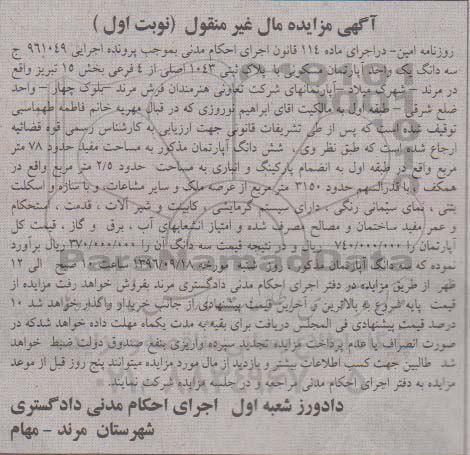 آگهی مزایده مال غیر منقول (نوبت اول )
روزنامه امین- دراجرای ماده ۱۱۴ قانون اجرای احکام مدنی بموجب پرونده اجرایی ۹۶۱۰۴۹ ج
سه دانگ یک واحد آپارتمان مسکونی با پلاک ثبتی ۱۰۴۳ اصلی از ۴ فرعی بخش ۱۵ تبریز واقع
در مرند – شهرک میلاد – آپارتمانهای شرکت تعاونی هنرمندان فرش مرند –بلوک چهار – واحد
ضلع شرقی – طبقه اول به مالکیت اقای ابراهیم نوروزی که در قبال مهریه خانم فاطمه طهماسبی
توقیف شده است که پس از طی تشریفات قانونی جهت ارزیابی به کارشناس رسمی قوه قضائیه
ارجاع شده است که طبق نظر وی ، شش دانگ آپارتمان مذکور به مساحت مفید حدود ۷۸ متر
مربع واقع در طبقه اول به انضمام پارکینگ و انباری به مساحت حدود ۲/۵ متر مربع واقع در
همکف و با قدرالسهم حدود ۳۱۵۰ متر مربع از عرصه ملک و سایر مشاعات، و با سازه و اسکلت
بتنی ، نمای سیمانی رنگی ، دارای سیستم گرمایشی ، کابینت و شیر آلات ، قدمت ، استحکام
و عمر مفید ساختمان و مصالح مصرف شده و امتیاز انشعابهای آب ، برق و گاز ، قیمت کل
آپارتمان را ۷۴۰/۰۰۰/۰۰۰ ریال و در نتیجه قیمت سه دانگ آن را ۳۷۰/۰۰۰/۰۰۰ ریال برآورد
نموده که سه دانگ آپارتمان مذکور ، روز شنبه مورخه ۱۳۹۶/۰۹/۱۸ ساعت ۱۰ صبح الی ۱۲
ظهر از طریق مزایده در دفتر اجرای احکام مدنی دادگستری مرند بفروش خواهد رفت مزایده از
قیمت پایه شروع به بالاترین و آخرین قیمت پیشنهادی از جانب خریدار واگذار خواهد شد ۱۰
درصد قیمت پیشنهادی فی المجلس دریافت برای بقیه به مدت یکماه مهلت داده خواهد شدکه در
صورت انصراف یا عدم پرداخت مزایده تجدید سپرده واریزی بنفع صندوق دولت ضبط خواهد
شد طالبین جهت کسب اطلاعات بیشتر و بازدید از مال مورد مزایده میتوانند پنج روز قبل از موعد
مزایده به دفتر اجرای احکام مدنی مراجعه و در جلسه مزایده شرکت نمایند.
دادورز شعبه اول اجرای احکام مدنی دادگستری
شهرستان مرند – مهام